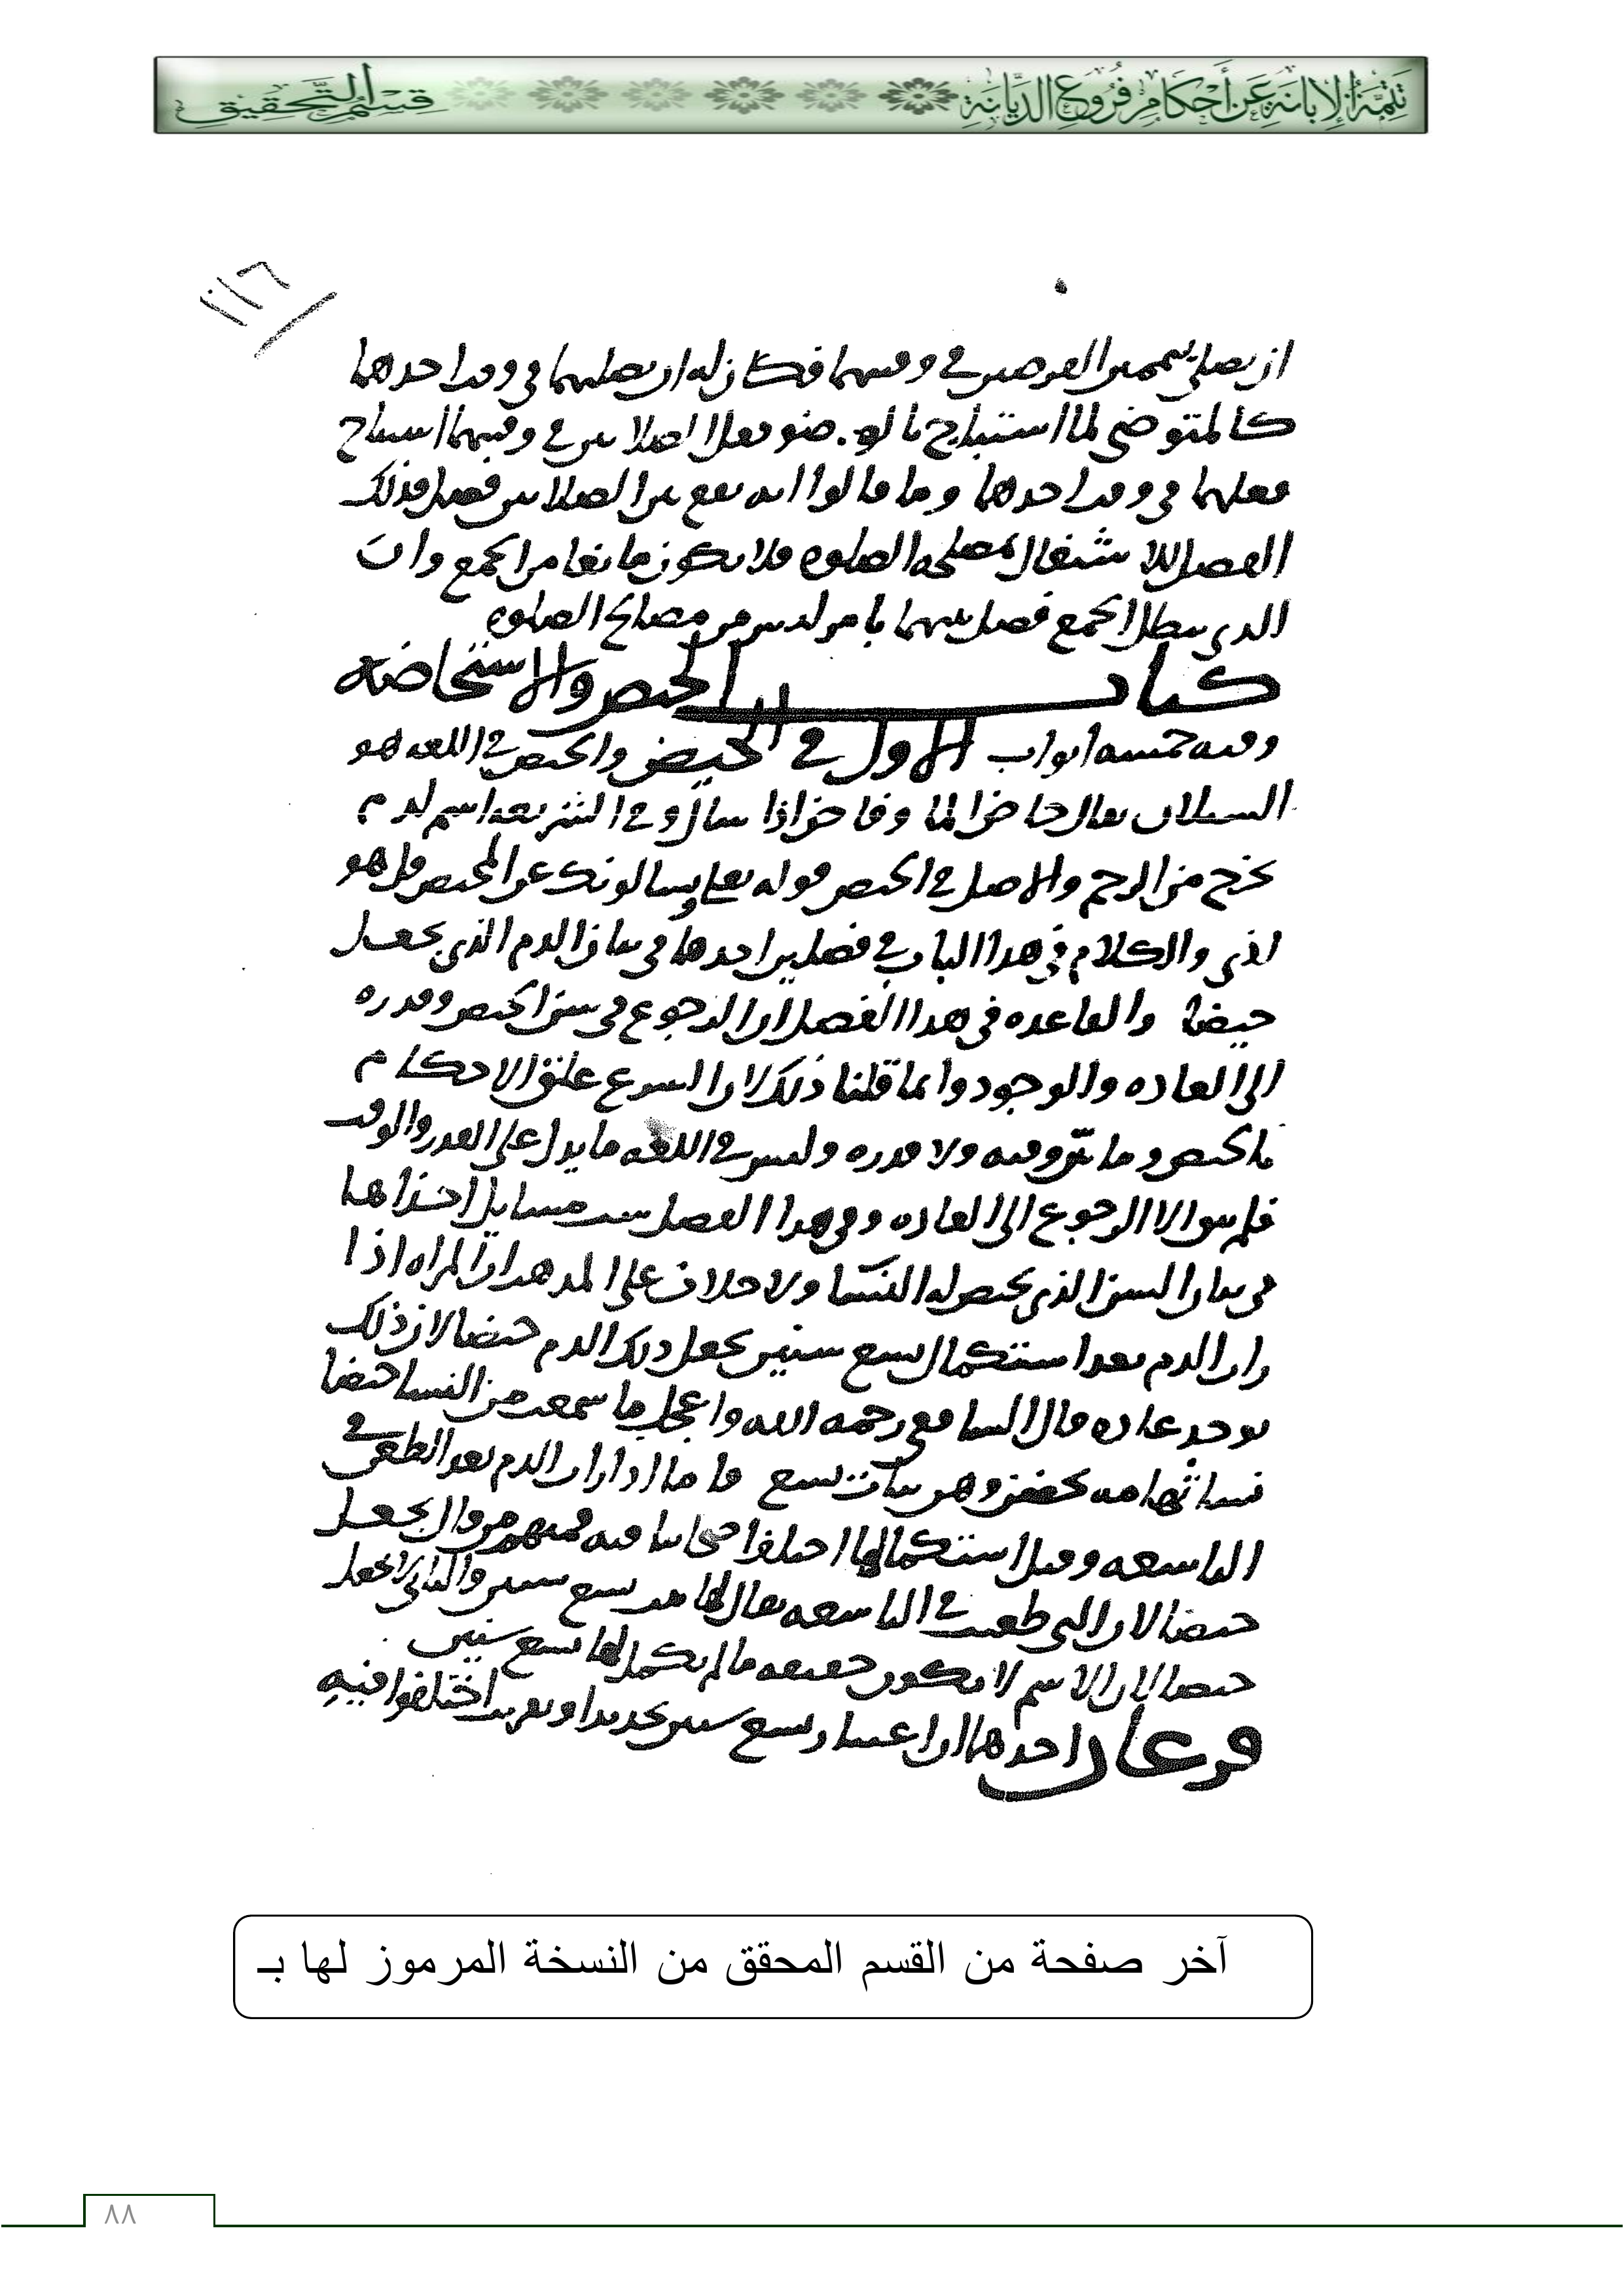 تتمة الإبانة عن أحكام فروع الديانة
قسم التحقيق
ان يصلي بتيممين الفرضين في وقتيهما فكان له ان يصليهما في وقت احدهما
كالمتوضى لما استباح بالوضو فعل الصلاتين في وقتيهما استباح
فعلهما في وقت احدهما وما قالوا انه يقع بين الصلاتين فصل فذلك
الفصل للاشتغال بمصلحه الصلوه فلا يكون مانعا من الجمع وان
الذي يبطل الجمع فصل بينهما بامر ليس من مصالح الصلوه
كتاب الحيض والاستحاضه
وفيه خمسه ابواب الاول في الحيض والحيض في اللغه هو
السيلان يقال حاض الما وفاض اذا سال وفي الشريعه اسم لدم
يخرج من الرحم والاصل في الحيض قوله تعالى ويسالونك عن المحيض قل هو
اذى والكلام في هذا الباب في فصلين احدهما في بيان الدم الذي يجعل
حيضا والقاعده في هذا الفصل ان الرجوع في سن الحيض وقدره
الى العاده والوجود وانما قلنا ذلك لان الشرع علق الاحكام
بالحيض وما بين وقته ولا قدره وليس في اللغه ما يدل على القدر والوقت
فلم يبق الا الرجوع الى العاده وفي هذا الفصل ست مسايل احداها
في بيان السن الذي يحيض له النسا ولا خلاف على المذهب ان المراه اذا
رات الدم بعد استكمال تسع سنين يجعل ذلك الدم حيضا لان ذلك
يوجد عاده قال الشافعي رحمه الله واعجل ما سمعت من النسا حيضا
نسا تهامه يحضن وهن بنات تسع فاما اذا رات الدم بعد الطعن في
التاسعه وقبل استكمالها اختلف اصحابنا فيه فمنهم من قال يجعل
حيضا لان التي طعنت في التاسعه يقال لها بنت تسع سنين والثاني لا يجعل
حيضا لان الاسم لا يكون حقيقه ما لم يكمل لها تسع سنين
فرعان احدهما ان اعتبار تسع سنين تحديد او تقريب اختلفوا فيه
آخر صفحة من القسم المحقق من النسخة المرموز لها بـ
٨٨